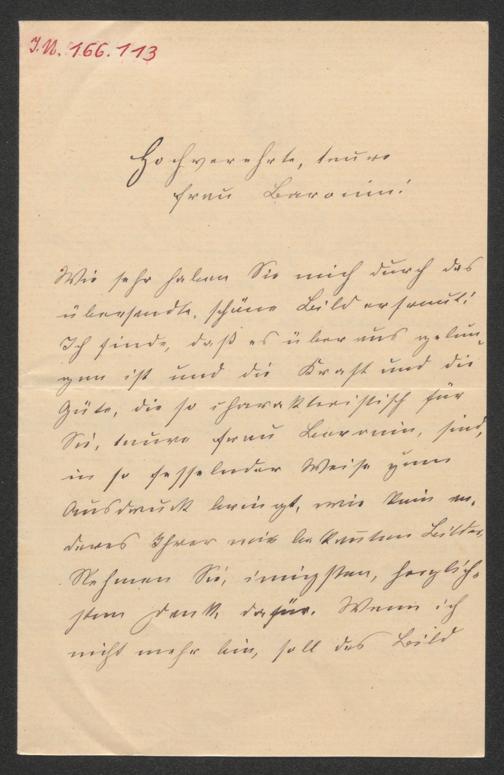 J.N. 166.113
Hochverehrte, teure
Frau Baronin!
Wie sehr haben Sie mich durch das
übersandte, schöne Bild erfreut!
Ich finde, daß es überaus gelun-
gen ist und die Kraft und die
Güte, die so charakteristisch für
Sie, teure Frau Baronin, sind,
in so fesselnder Weise zum
Ausdruck bringt, wie kein an-
deres Ihrer mir bekannten Bilder.
Nehmen Sie, innigsten, herzlich-
sten Dank dafür. Wenn ich
nicht mehr bin, soll das Bild